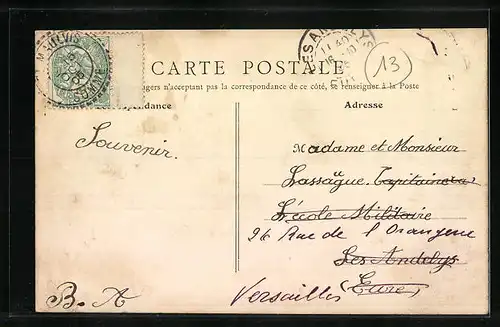 MAULVIS
SOMME
LES ANDELYS
11 40
16
13
CARTE POSTALE
ngers n'acceptant pas la correspondance de ce côté, se renseigner à la Poste
pondance
Adresse
Souvenir.
Madame et Monsieur
Lassague Capitaine
L'école Militaire
26 Rue de l'Orangerie
Les Andelys
Versailles (Eure)
B. A